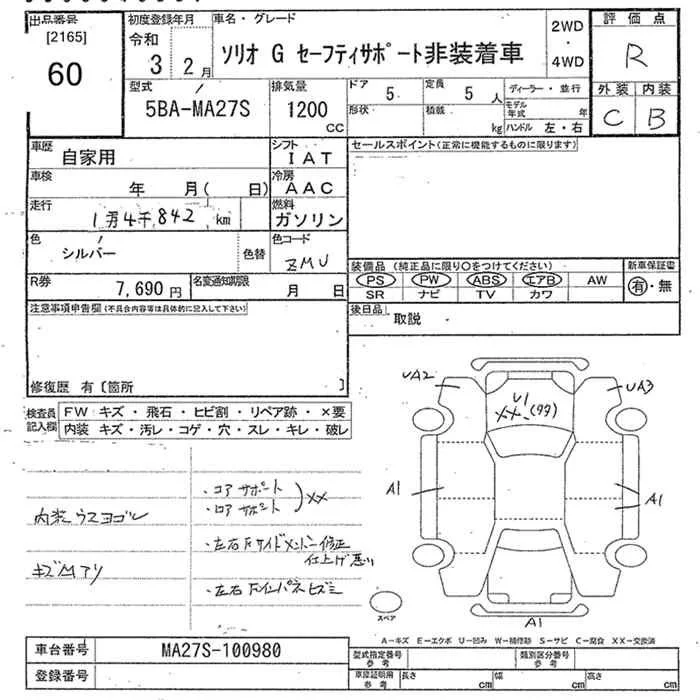 出品番号
[2165]
60
初度登録年月
令和
3 2月
車名・グレード
ソリオ G セーフティサポート非装着車
2WD
・
4WD
評価点
R
外装 内装
C B
型式
5BA-MA27S
排気量
1200
cc
ドア
5
形状
定員
5 人
積載
kg
ディーラー・並行
モデル年式 年
ハンドル 左・右
車歴
自家用
シフト
IAT
車検
年 月( 日)
冷房
AAC
走行
1万4千842 km
燃料
ガソリン
色
シルバー
色替
色コード
ZMU
R券
7,690 円
名変通知期限
月 日
セールスポイント(正常に機能するものに限ります)
装備品 (純正品に限り○をつけてください)
PS PW ABS エアB AW
SR ナビ TV カワ
新車保証書
有・無
後日品
取説
注意事項申告欄(不具合内容等は具体的に記入して下さい)
修復歴 有〔箇所 〕
検査員記入欄
FW キズ・飛石・ヒビ割・リペア跡・×要
内装 キズ・汚レ・コゲ・穴・スレ・キレ・破レ
内装ウスヨゴレ
キズ凹アリ
・コアサポート
・ロアサポート
XX
・左右Fサイドメンバー修正
仕上げ悪い
・左右Fインパネヒズミ
UA2
U1
XX (99)
UA3
A1
A1
A1
スペア
A-キズ E-エクボ U-凹み W-補修跡 S-サビ C-腐食 XX-交換済
車台番号
MA27S-100980
登録番号
型式指定番号
参考
類別区分番号
参考
車庫証明用
参考
長さ cm
幅 cm
高さ cm